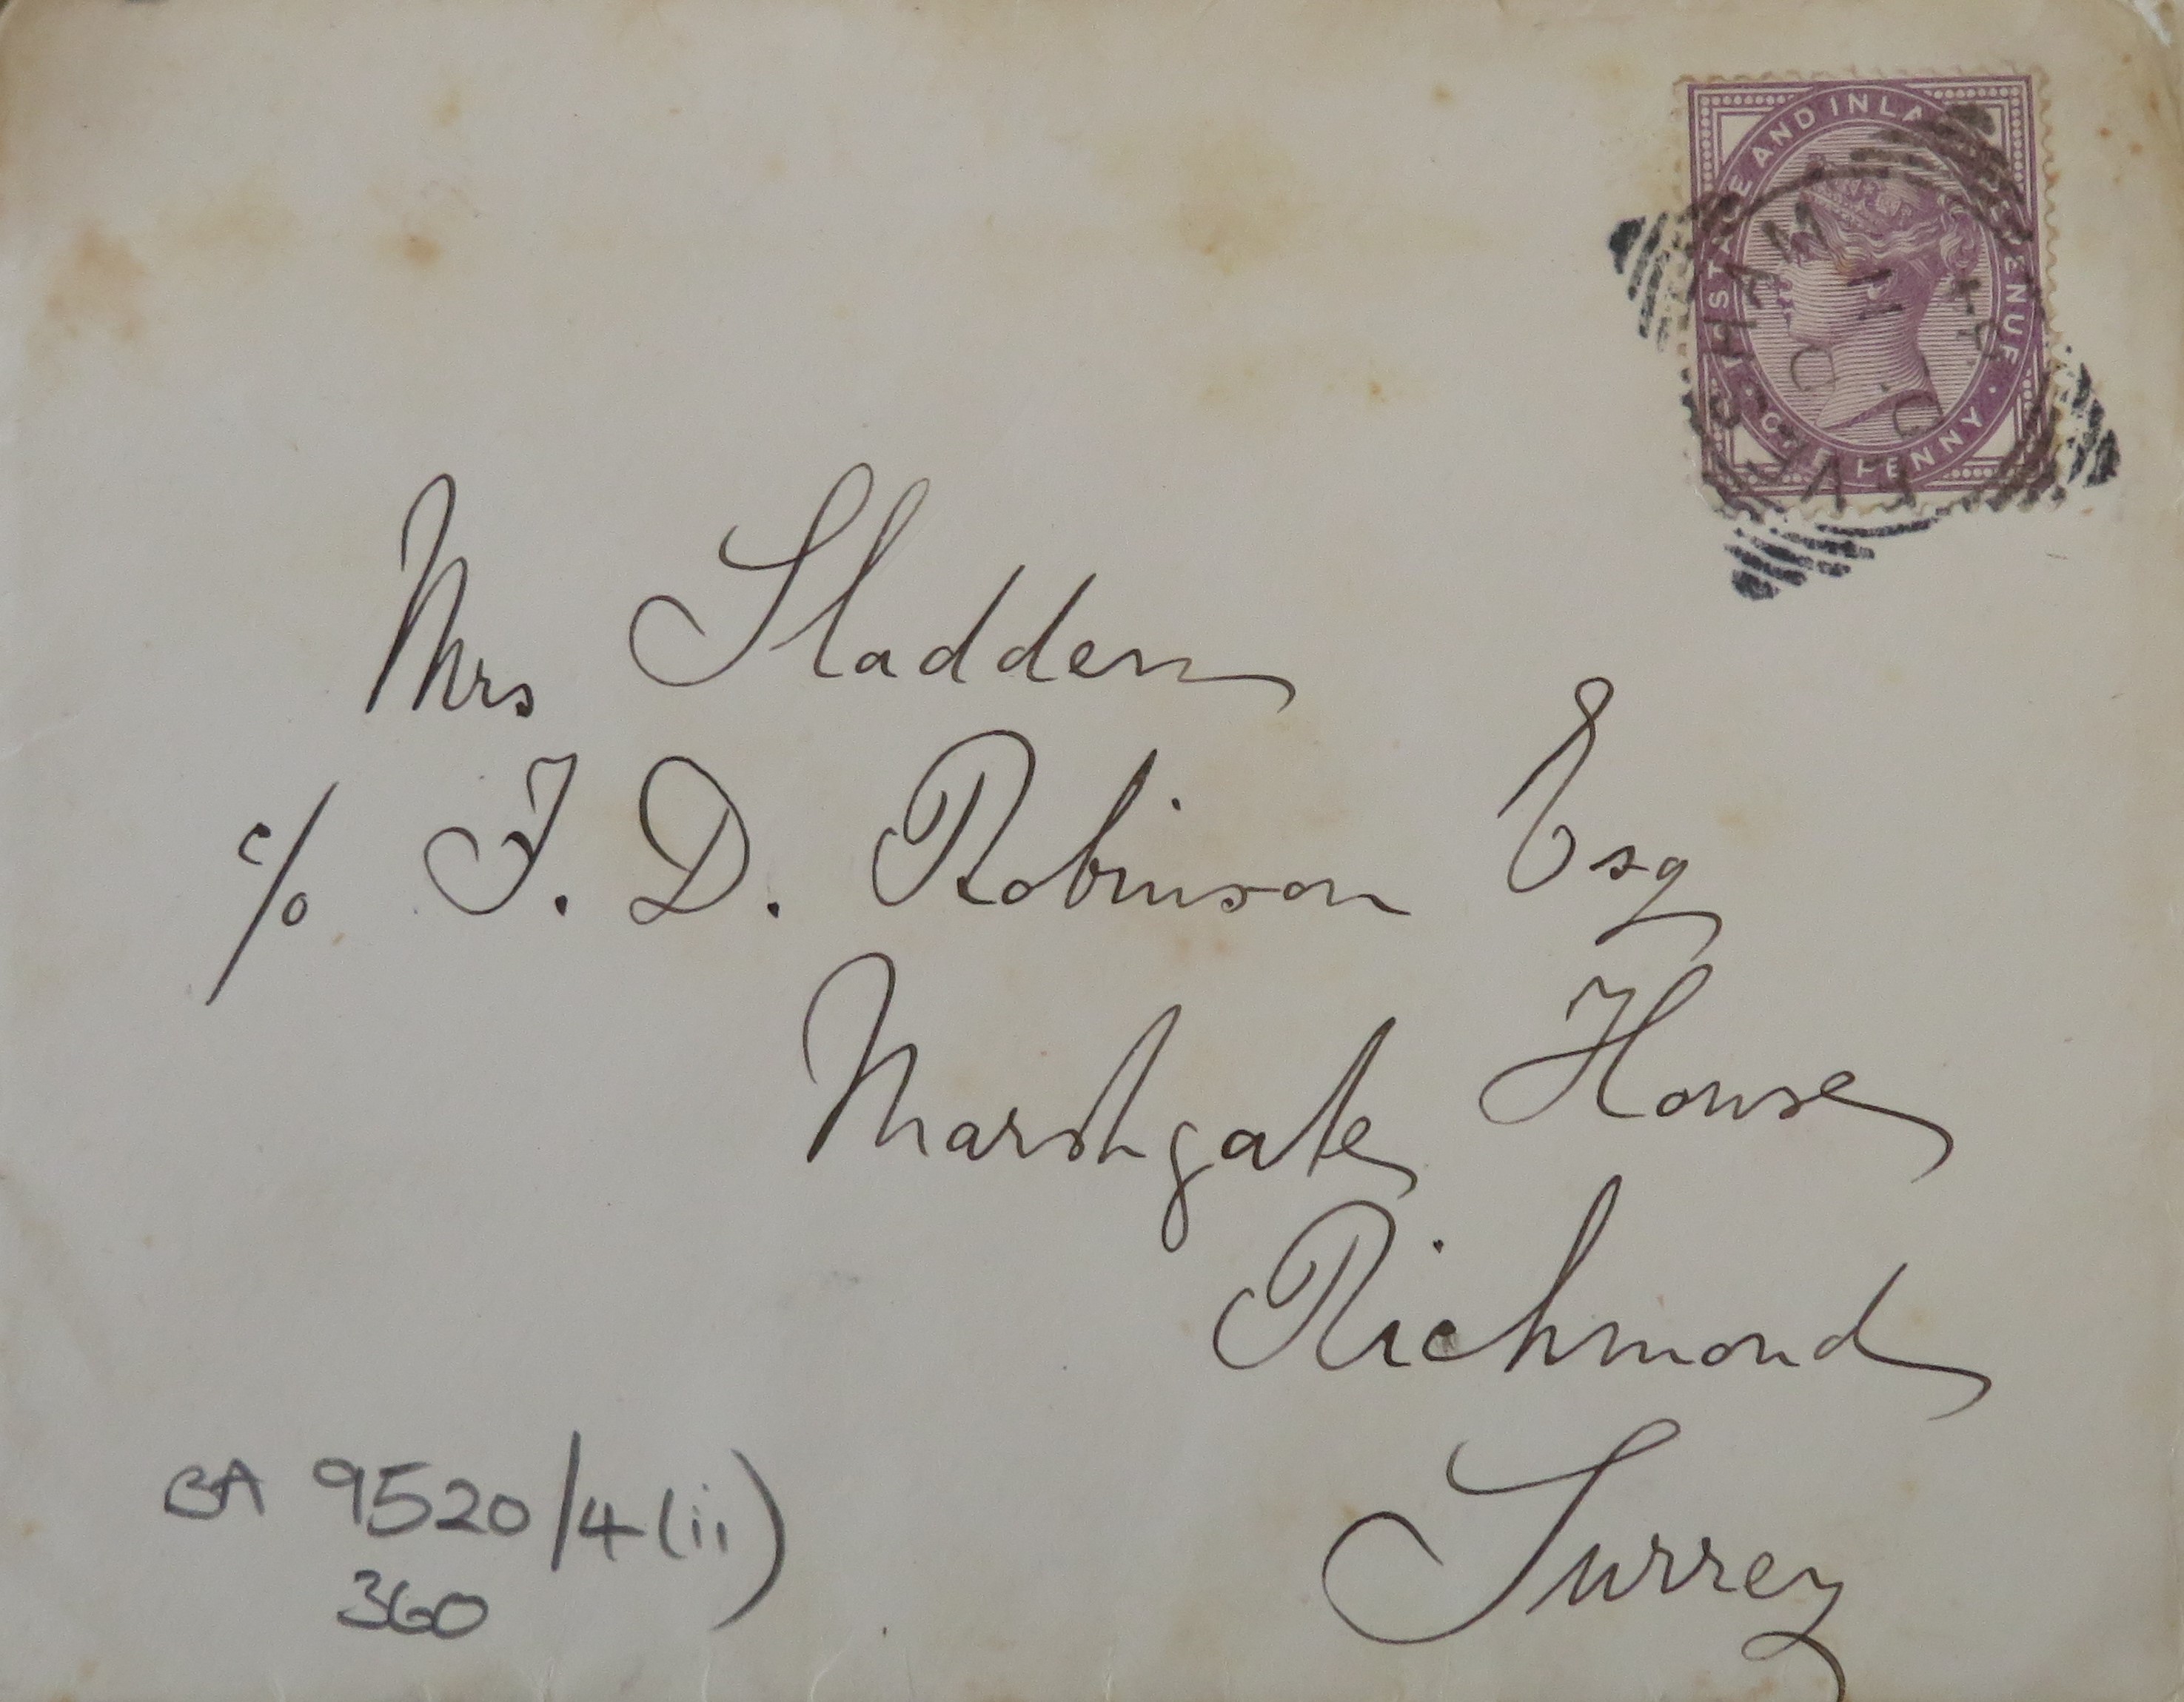 POSTAGE AND INLAND REVENUE
ONE PENNY
Mrs Sladden
c/o J. D. Robinson Esq
Marshgate House
Richmond
Surrey
BA 9520/4(ii)
360